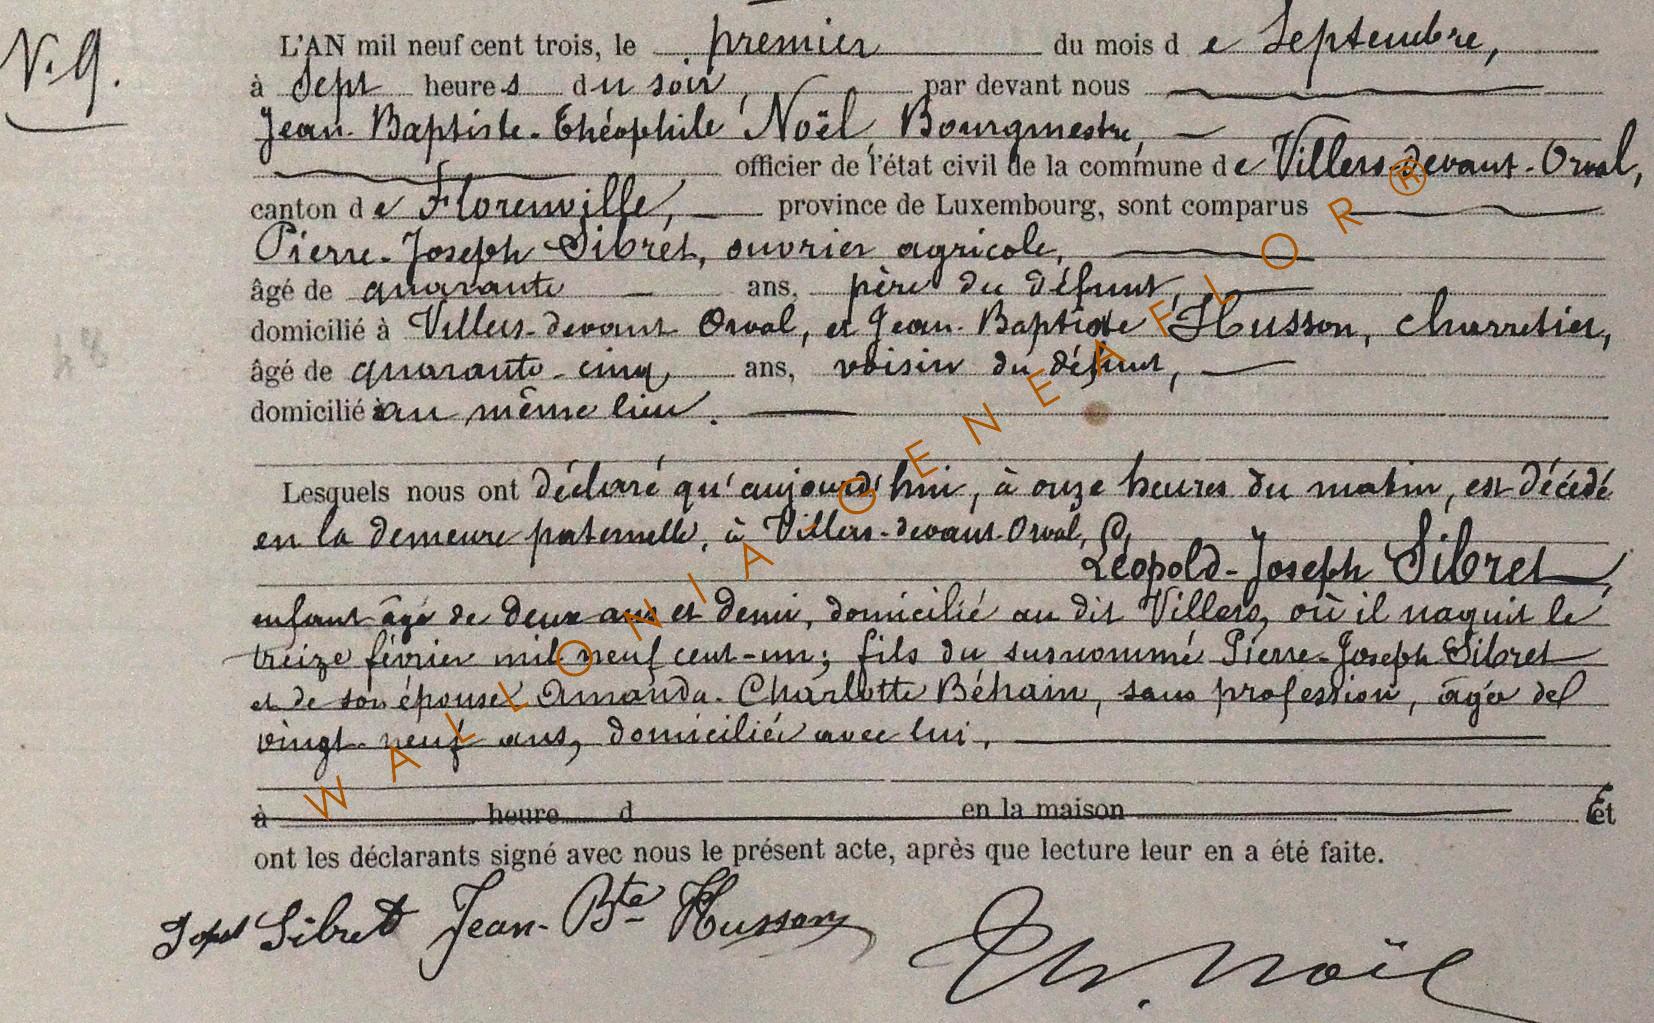 N. 9.
L'AN mil neuf cent trois, le premier du mois de Septembre,
à Sept heures du soir, par devant nous
Jean-Baptiste-Théophile Noël, Bourgmestre,
officier de l'état civil de la commune de Villers-devant-Orval,
canton de Florenville, province de Luxembourg, sont comparus
Pierre-Joseph Sibret, ouvrier agricole,
âgé de quarante ans, père du défunt,
domicilié à Villers-devant Orval, et Jean-Baptiste Husson, charretier,
âgé de quarante-cinq ans, voisin du défunt,
domicilié au même lieu.
Lesquels nous ont déclaré qu'aujourd'hui, à onze heures du matin, est décédé
en la demeure paternelle, à Villers-devant-Orval,
Léopold-Joseph Sibret,
enfant âgé de deux ans et demi, domicilié au dit Villers, où il naquit le
treize février mil neuf cent-un; fils du susnommé Pierre-Joseph Sibret
et de son épouse Amanda-Charlotte Béhain, sans profession, âgée de
vingt-neuf ans, domiciliée avec lui,
à heure d en la maison Et
ont les déclarants signé avec nous le présent acte, après que lecture leur en a été faite.
Sibret Jean-Bte Husson
Th. Noël
WALLONIA GENEAFLOR®